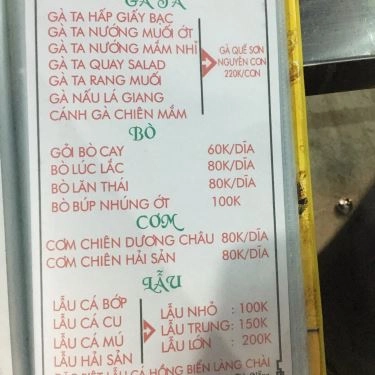 GÀ TA
GÀ TA HẤP GIẤY BẠC
GÀ TA NƯỚNG MUỐI ỚT
GÀ TA NƯỚNG MẮM NHỈ
GÀ TA QUAY SALAD
GÀ TA RANG MUỐI
GÀ NẤU LÁ GIANG
CÁNH GÀ CHIÊN MẮM
GÀ QUẾ SƠN
NGUYÊN CON
220K/CON
BÒ
GỎI BÒ CAY 60K/DĨA
BÒ LÚC LẮC 80K/DĨA
BÒ LĂN THÁI 80K/DĨA
BÒ BÚP NHÚNG ỚT 100K
CƠM
CƠM CHIÊN DƯƠNG CHÂU 80K/DĨA
CƠM CHIÊN HẢI SẢN 80K/DĨA
LẪU
LẪU CÁ BỚP
LẪU CÁ CU
LẪU CÁ MÚ
LẪU HẢI SẢN
LẪU NHỎ : 100K
LẪU TRUNG: 150K
LẪU LỚN : 200K
ĐẶC BIỆT LẪU CÁ HỒNG BIỂN LÀNG CHÀI